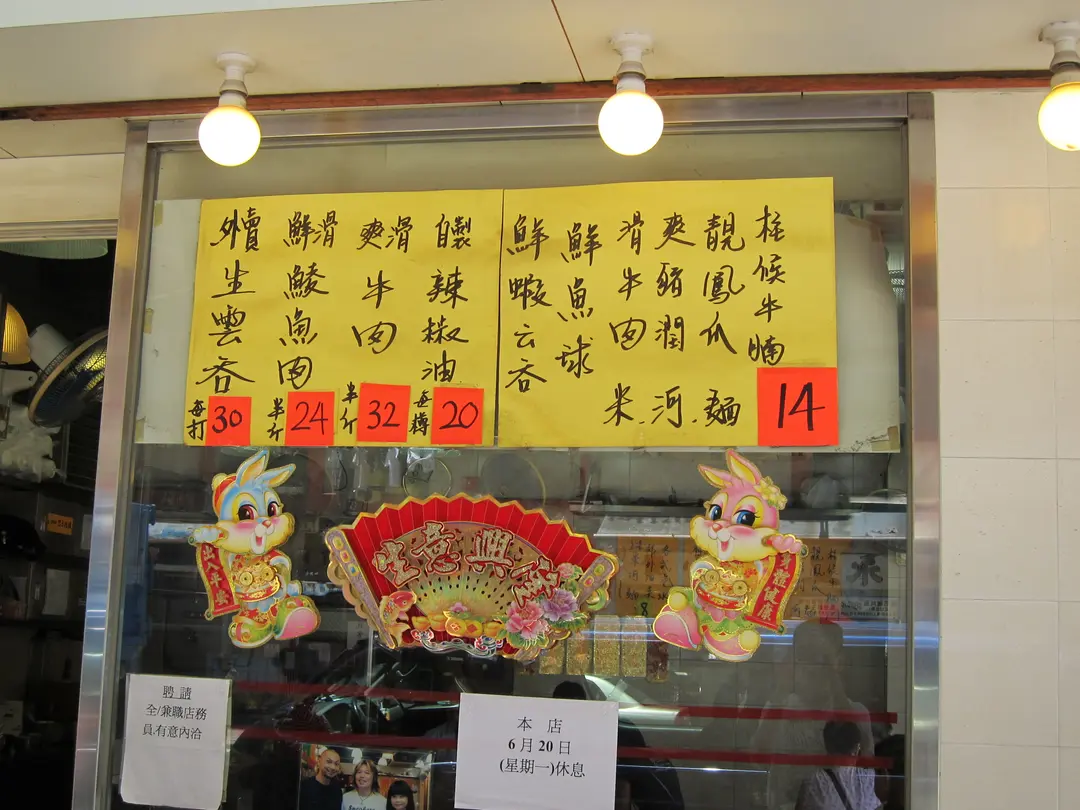 外賣生雲吞
每打
30
鮮滑鯪魚肉
半斤
24
爽滑牛肉
半斤
32
自製辣椒油
每樽
20
鮮蝦云吞
鮮魚球
滑牛肉
爽豬潤
靚鳳爪
柱候牛腩
米.河.麵
14
出入平安
生意興隆
身體健康
聘 請
全/兼職店務
員.有意內洽
本 店
6月20日
(星期一)休息